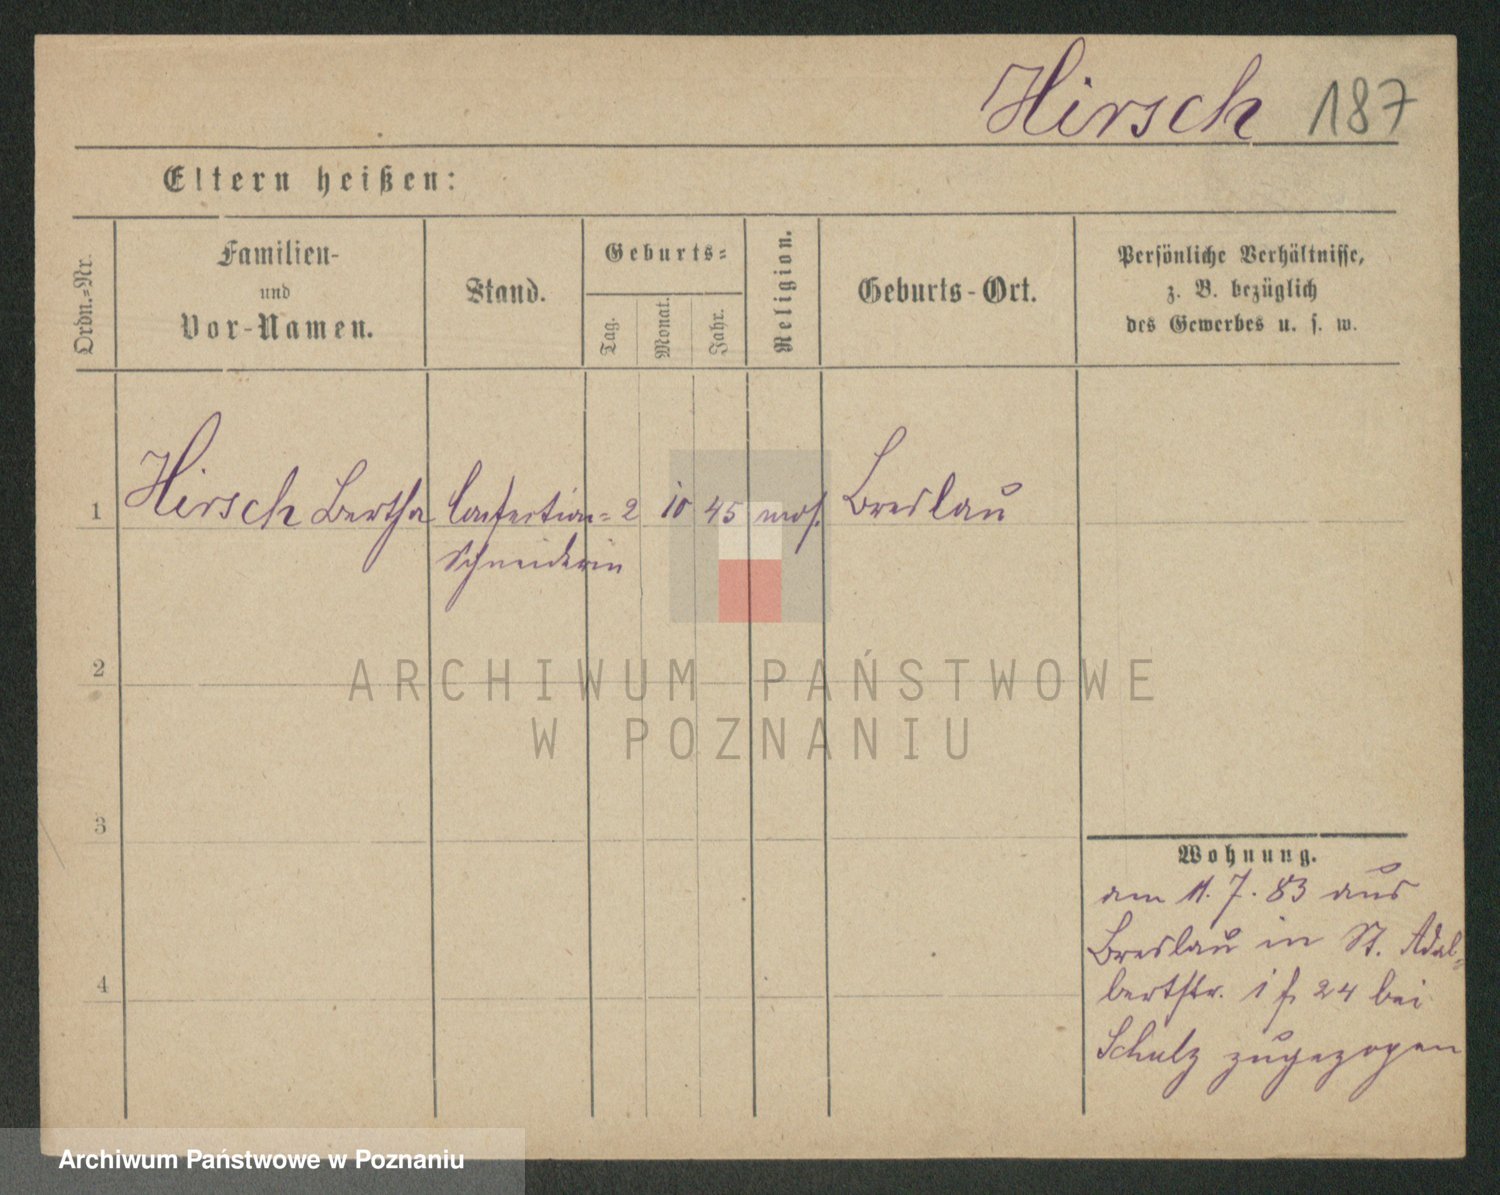 Hirsch 187
Eltern heißen:
Ordn.-Nr.
Familien-
und
Vor-Namen.
Stand.
Geburts-
Tag.
Monat.
Jahr.
Religion.
Geburts-Ort.
Persönliche Verhältnisse,
z. B. bezüglich
des Gewerbes u. s. w.
1 Hirsch Bertha Confection- 2 10 45 mos. Breslau
Schneiderin
2
3
4
Wohnung.
am 11. 7. 83 aus
Breslau in St. Adal-
bertstr. 24 bei
Schulz zugezogen
ARCHIWUM PAŃSTWOWE
W POZNANIU
Archiwum Państwowe w Poznaniu